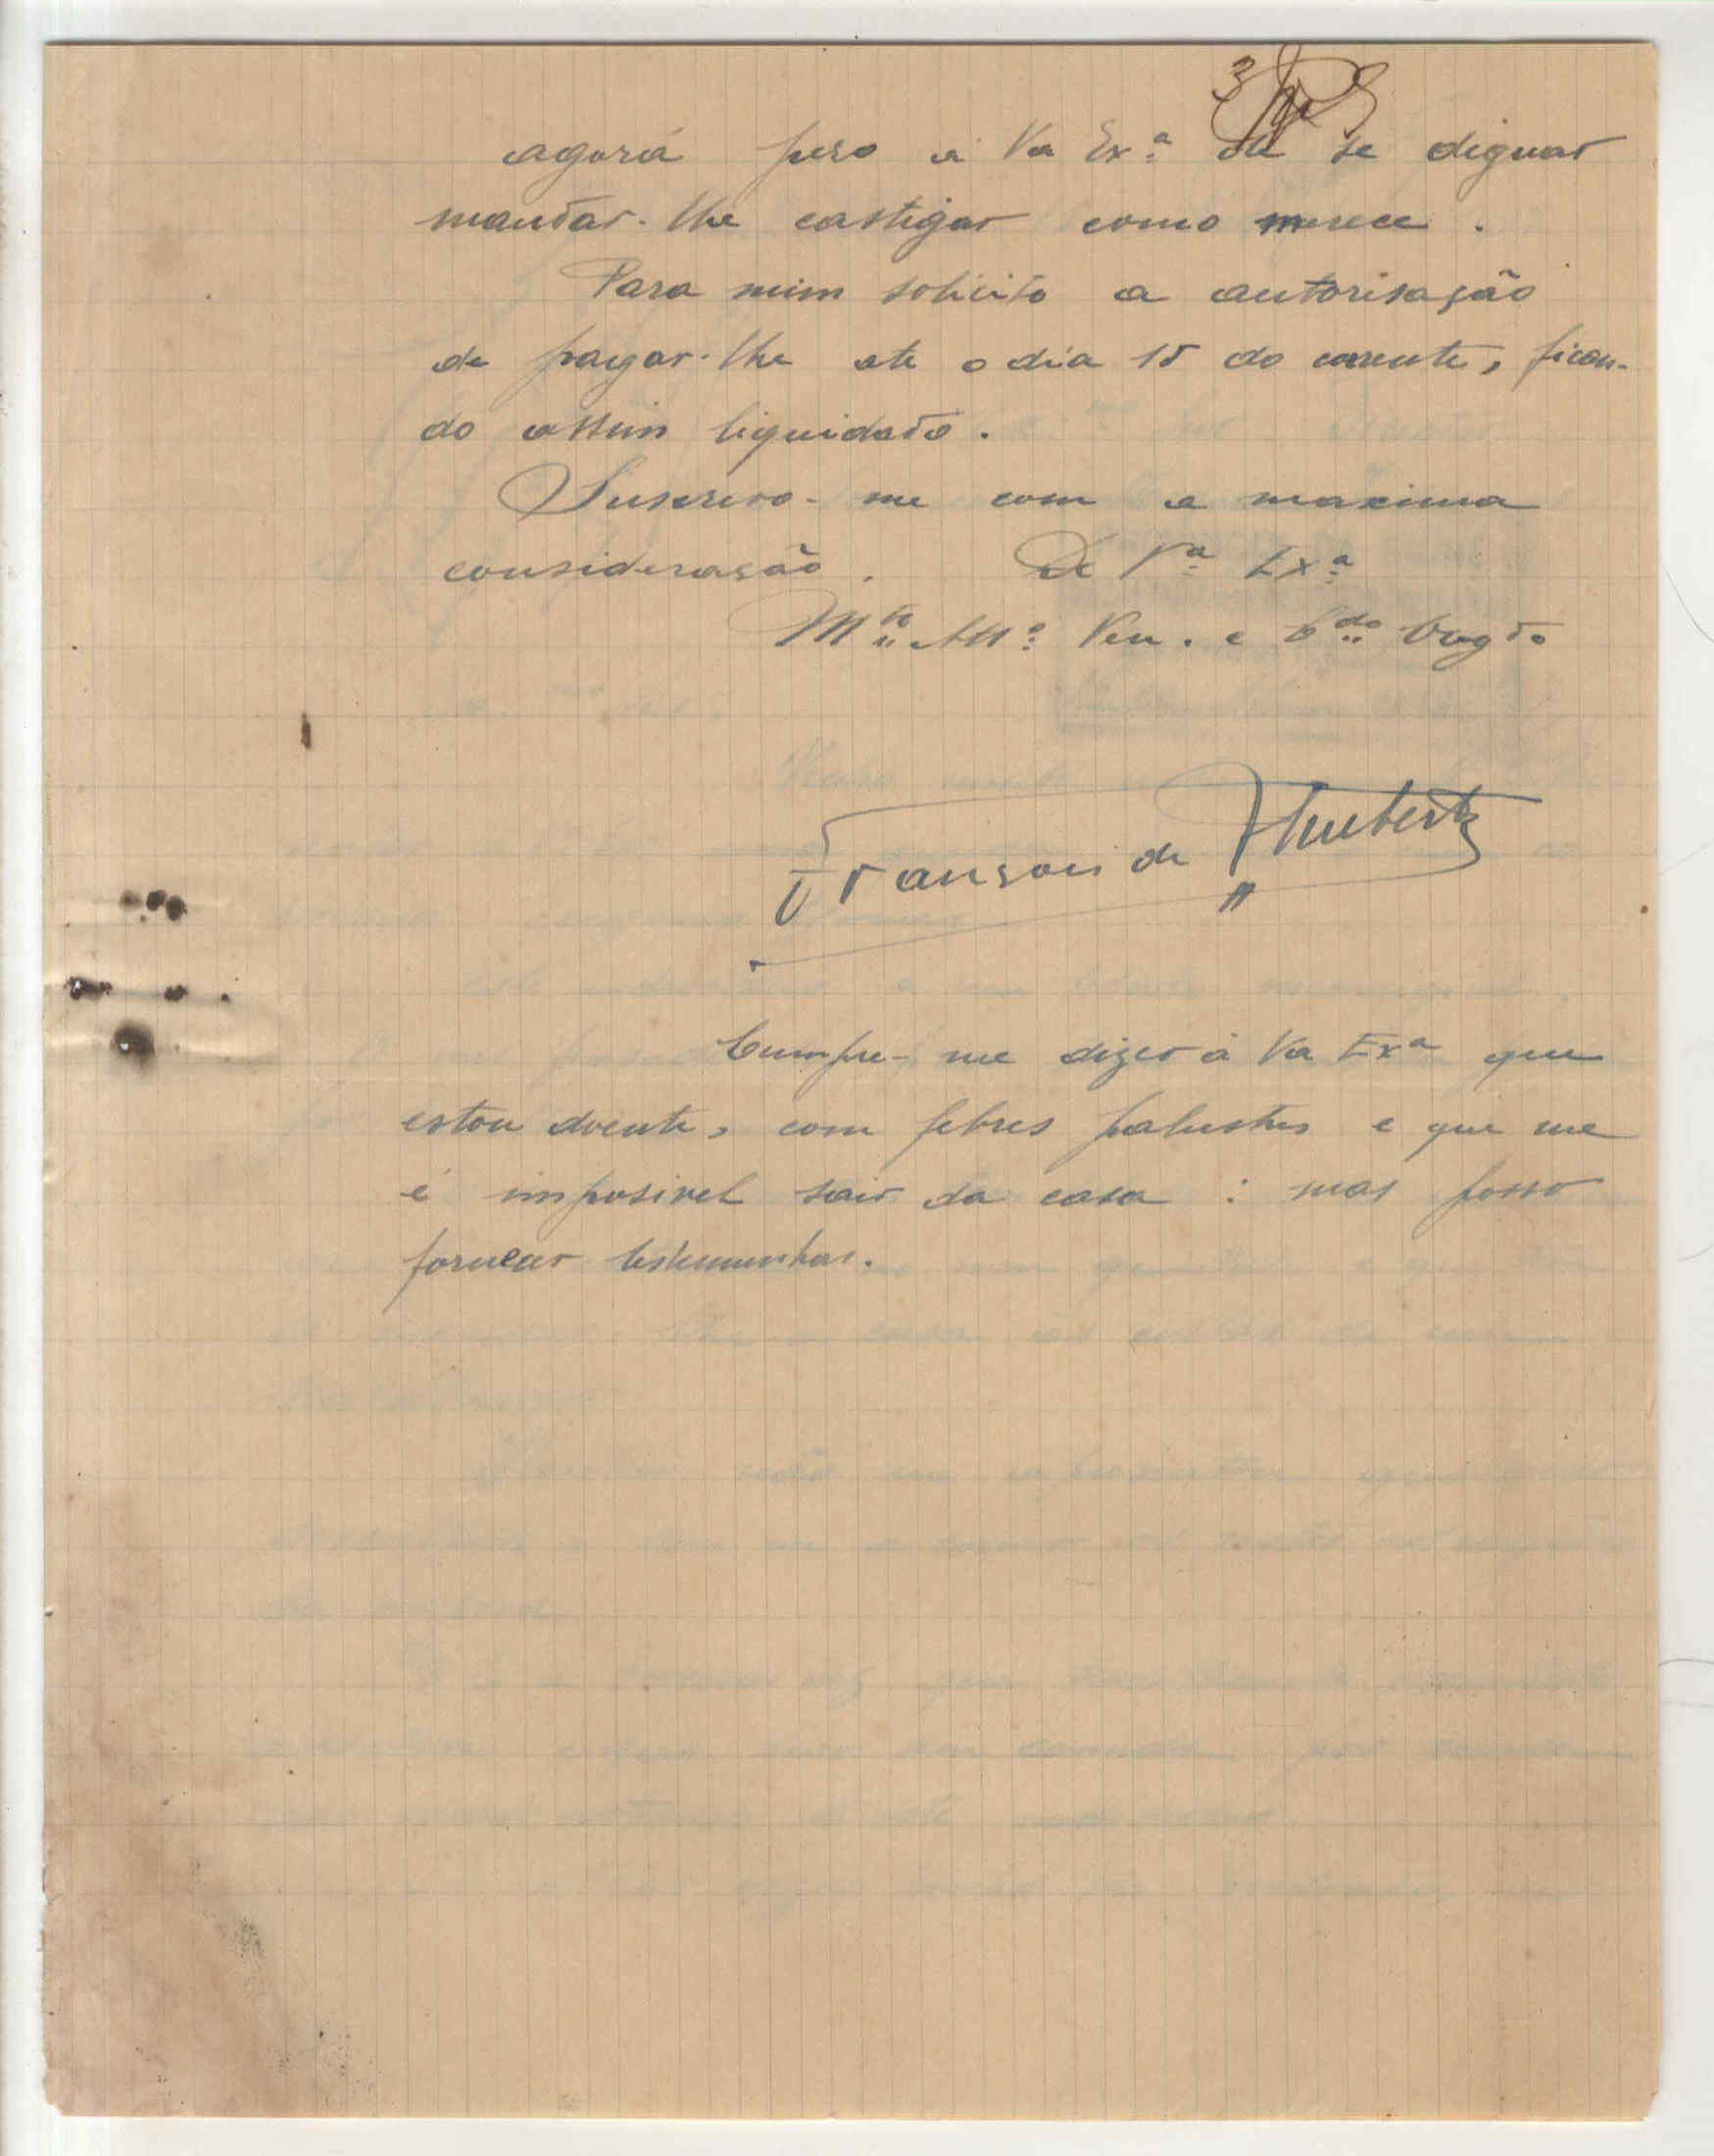 3
agorá peso a Va Exª de se dignar
mandar-lhe castigar como merece.
Para mim solicito a autorisação
de pagar-lhe ate o dia 15 do corrente, fican-
do assim liquidado.
Suscrevo-me com a maxima
consideração. De Vª Exª
Mto Attº Ven. e Cdo Obgdo
François de Hubertz
Cumpre-me dizer à Va Exª que
estou doente, com febres palustres e que me
é imposivel sair da casa : mas posso
fornecer testemunhas.